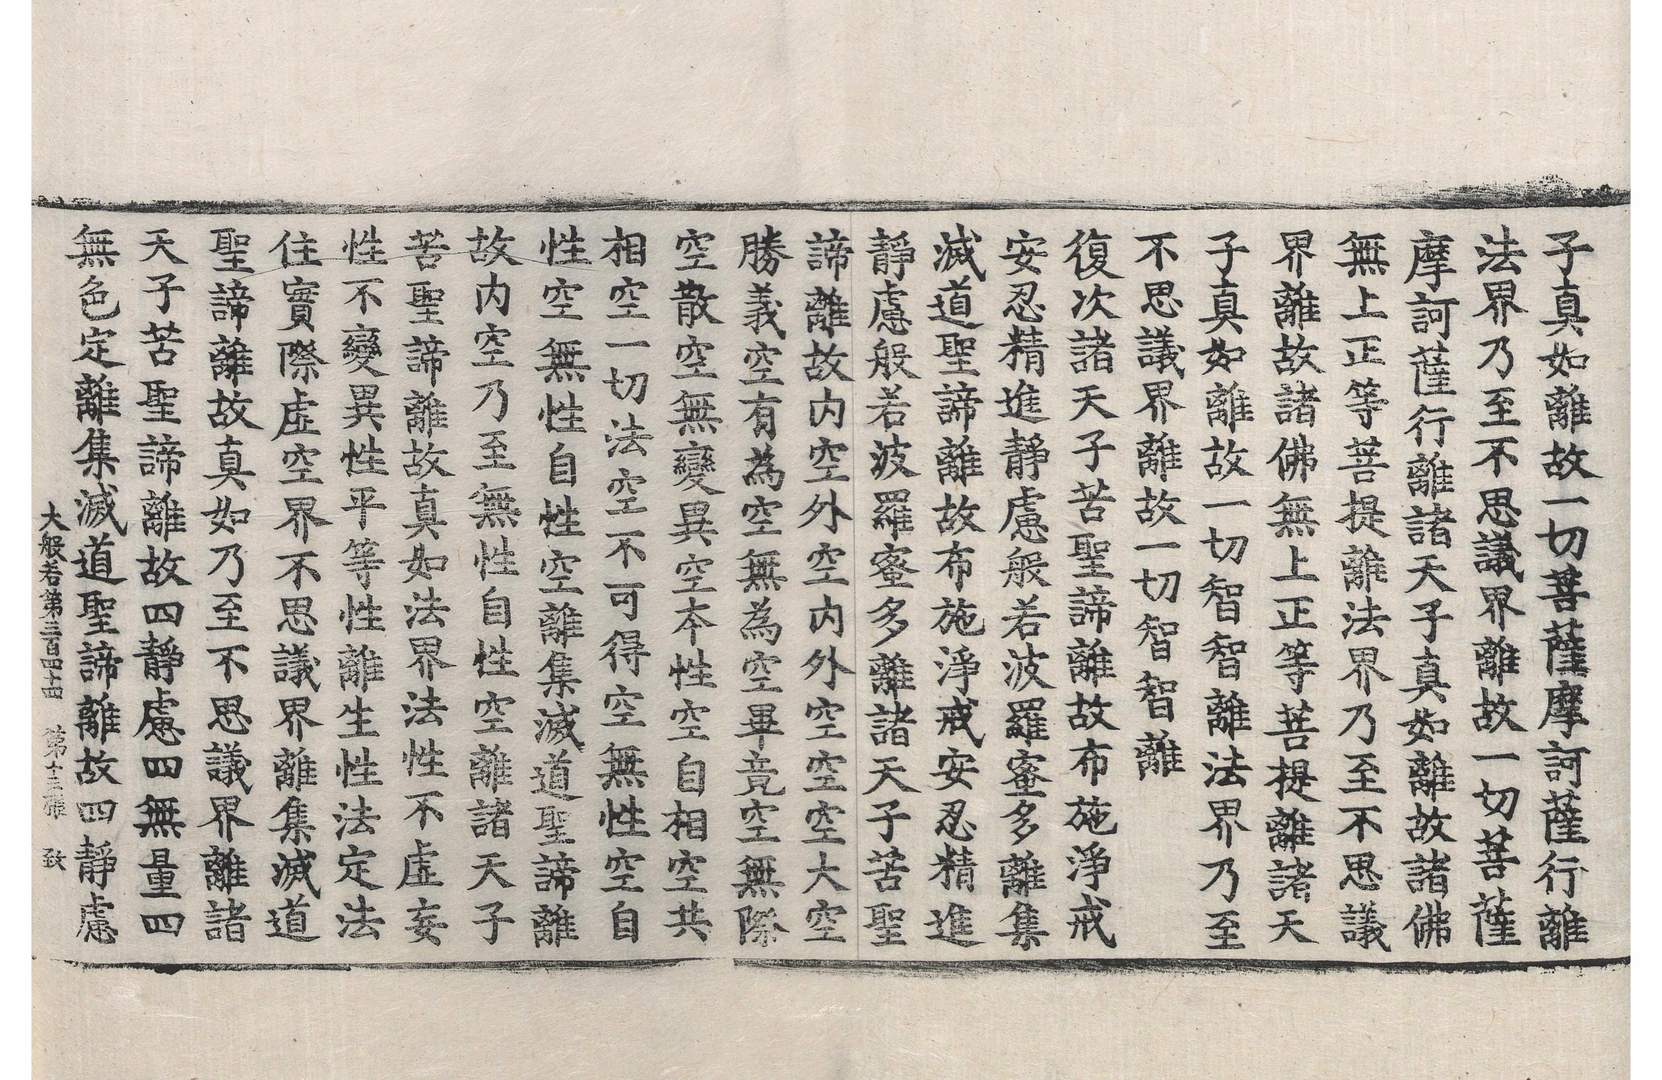 子真如離故一切菩薩摩訶薩行離
法界乃至不思議界離故一切菩薩
摩訶薩行離諸天子真如離故諸佛
無上正等菩提離法界乃至不思議
界離故諸佛無上正等菩提離諸天
子真如離故一切智智離法界乃至
不思議界離故一切智智離
復次諸天子苦聖諦離故布施淨戒
安忍精進靜慮般若波羅蜜多離集
滅道聖諦離故布施淨戒安忍精進
靜慮般若波羅蜜多離諸天子苦聖
諦離故内空外空内外空空空大空
勝義空有為空無為空畢竟空無際
空散空無變異空本性空自相空共
相空一切法空不可得空無性空自
性空無性自性空離集滅道聖諦離
故内空乃至無性自性空離諸天子
苦聖諦離故真如法界法性不虛妄
性不變異性平等性離生性法定法
住實際虛空界不思議界離集滅道
聖諦離故真如乃至不思議界離諸
天子苦聖諦離故四靜慮四無量四
無色定離集滅道聖諦離故四靜慮
大般若第三百四十四 第十三張 致